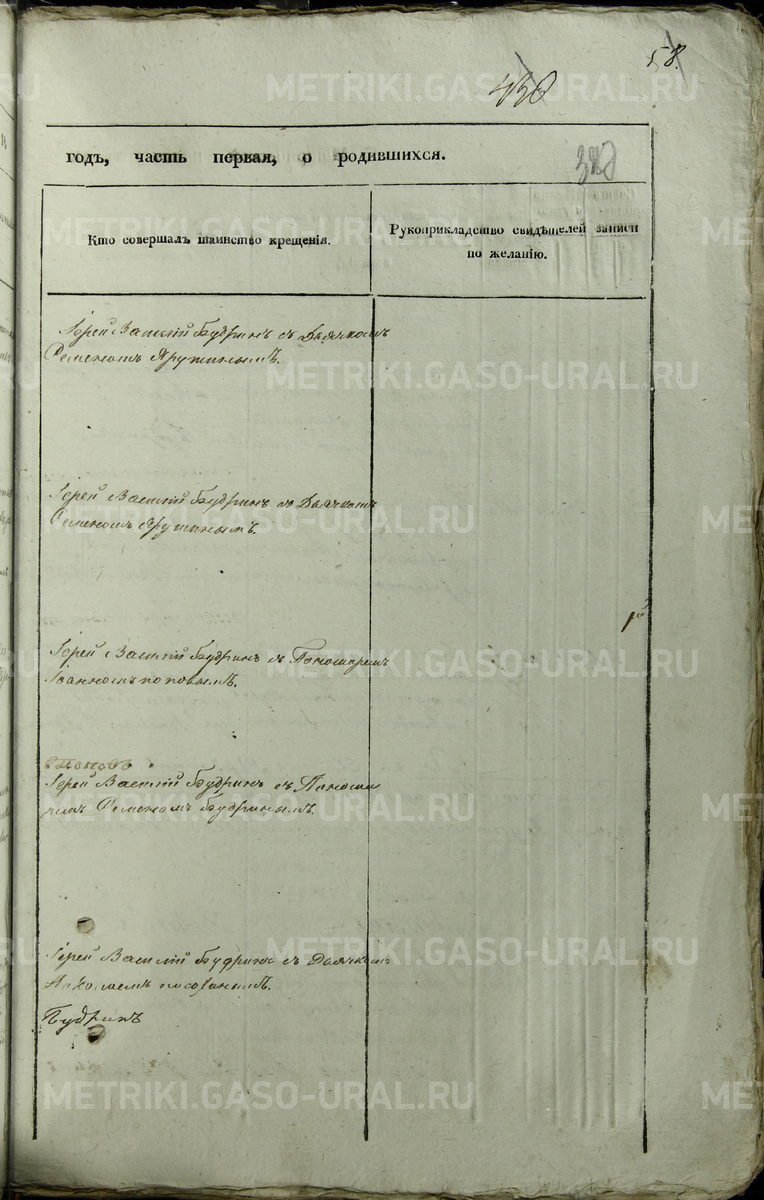 58.
годъ, часть первая, о родившихся.
Кто совершалъ таинство крещенія.
Рукоприкладство свидѣтелей записи
по желанію.
Іерей Василій Будринъ съ Дьячкомъ
Семеномъ
Іерей Василій Будринъ съ Дьячкомъ
Семеномъ
Іерей Василій Будринъ съ Пономаремъ
Іоанномъ поповымъ.
Поповъ
Іерей Василій Будринъ съ Понома
ремъ Семеномъ Будринымъ.
Іерей Василій Будринъ съ Дьячкомъ
Будринъ
METRIKI.GASO-URAL.RU